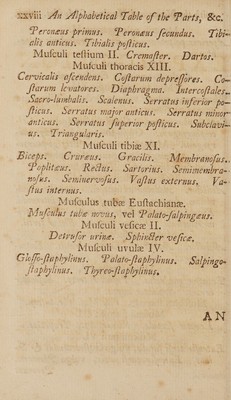 xxviii An Alphabetical Table of the Parts, &c.
Peronæus primus. Peronæus ſecundus. Tibi-
alis anticus. Tibialis poſticus.
Muſculi teſtium II. Cremaſter. Dartos.
Muſculi thoracis XIII.
Cervicalis aſcendens. Coſtarum depreſſores. Co-
ſtarum levatores. Diaphragma. Intercoſtales.
Sacro-lumbalis. Scalenus. Serratus inferior po-
ſticus. Serratus major anticus. Serratus minor
anticus. Serratus ſuperior poſticus. Subclavi-
us. Triangularis.
Muſculi tibiæ XI.
Biceps. Cruræus. Gracilis. Membranoſus.
Poplitæus. Rectus. Sartorius. Semimembra-
noſus. Seminervoſus. Vaſtus externus. Va-
ſtus internus.
Muſculus tubæ Euſtachianæ.
Muſculus tubæ novus, vel Palato-ſalpingæus.
Muſculi veſicæ II.
Detruſor urinæ. Sphincter veſicæ.
Muſculi uvulæ IV.
Gloſſo-ſtaphylinus. Palato-ſtaphylinus. Salpingo-
ſtaphylinus. Thyreo-ſtaphylinus.
AN